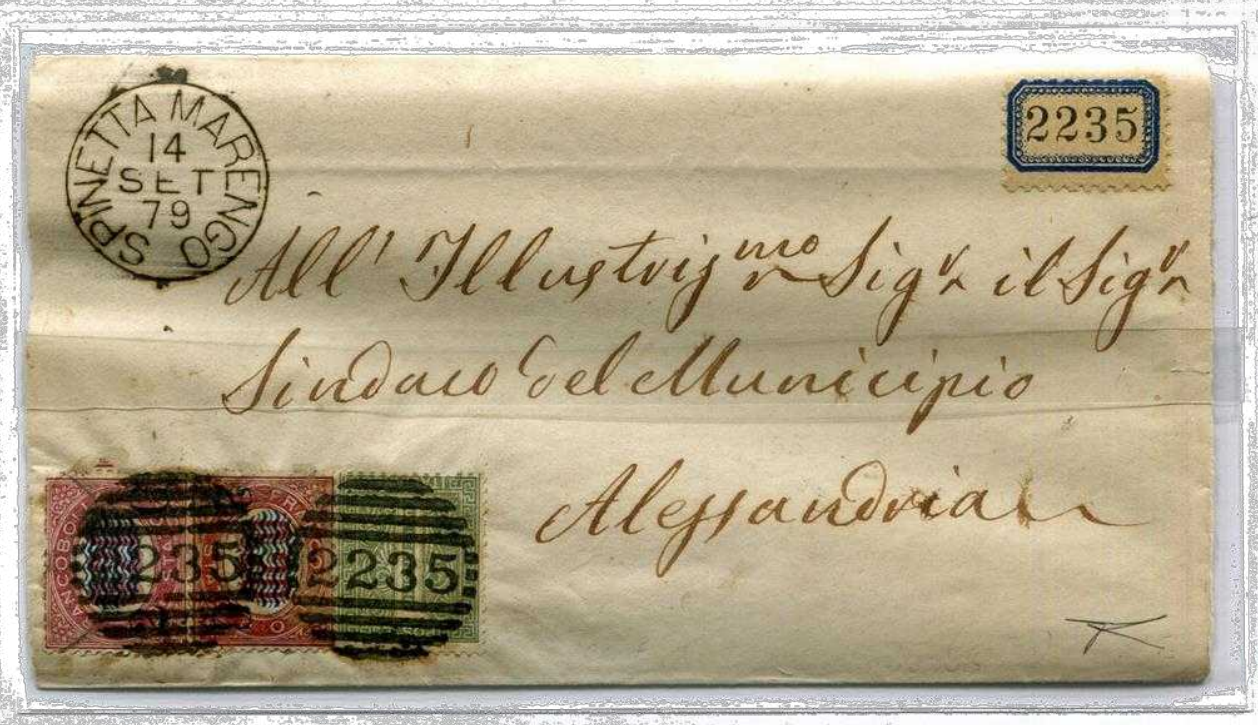 SPINETTA MARENGO
14
SET
79
2235
All' Illustris mo Sigr il Sigr
Sindaco del Municipio
Alessandria
235
2235